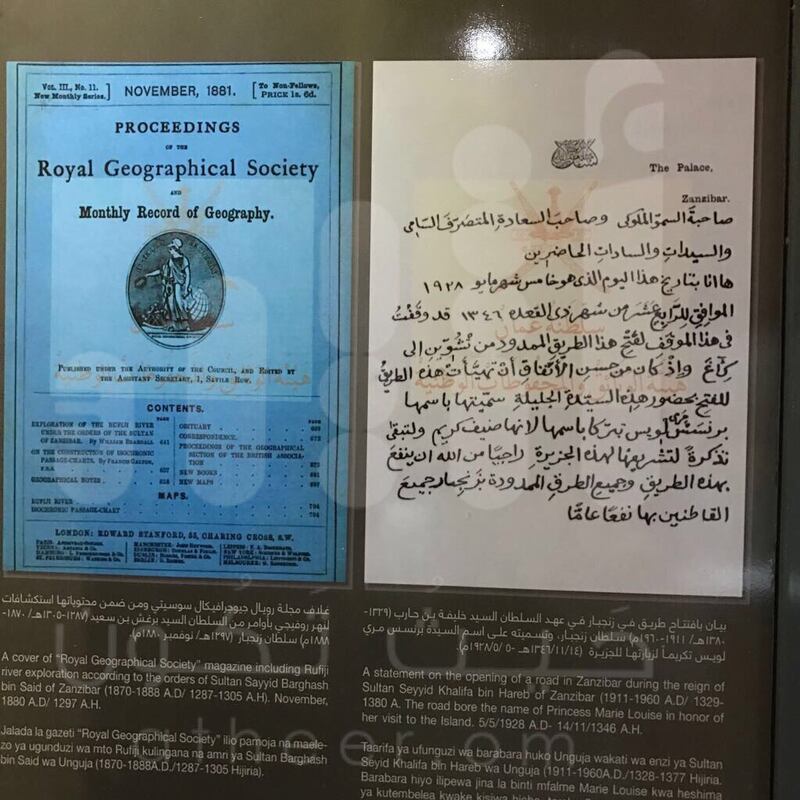 Vol. III., No. 11.
New Monthly Series.
NOVEMBER, 1881.
To Non-Fellows,
PRICE 1s. 6d.
PROCEEDINGS
OF THE
Royal Geographical Society
AND
Monthly Record of Geography.
PUBLISHED UNDER THE AUTHORITY OF THE COUNCIL, AND EDITED BY
THE ASSISTANT SECRETARY, 1, SAVILE ROW.
CONTENTS.
PAGE
EXPLORATION OF THE RUFIJI RIVER
UNDER THE ORDERS OF THE SULTAN
OF ZANZIBAR. By WILLIAM BEARDALL 641
ON THE CONSTRUCTION OF ISOCHRONIC
PASSAGE-CHARTS. By FRANCIS GALTON,
F.R.S. 657
GEOGRAPHICAL NOTES 658
PAGE
OBITUARY
CORRESPONDENCE
PROCEEDINGS OF THE GEOGRAPHICAL
SECTION OF THE BRITISH ASSOCIA-
TION
NEW BOOKS
NEW MAPS
MAPS.
RUFIJI RIVER 704
ISOCHRONIC PASSAGE-CHART 704
LONDON: EDWARD STANFORD, 55, CHARING CROSS, S.W.
The Palace,
Zanzibar.
صاحبة السمو الملوكى وصاحب السعادة المتصرف السامى
والسيدات والسادات الحاضرين
ها انا بتاريخ هذا اليوم الذى هو خامس شهر مايو ١٩٢٨
الموافق للرابع عشر من شهر ذى القعده ١٣٤٦ قد وقفت
فى هذا الموقف لفتح هذا الطريق الممدود من نشوين إلى
واذ كان من حسن الأتفاق أن تهيأت هذه الطريق
للفتح بحضور هذه السيدة الجليلة سميتها باسمها
برنسس مرى لويس تبركا باسمها لانها ضيف كريم ولتبقى
تذكرة لتشريفها لهذه الجزيرة راجيا من الله ان ينفع
بهذه الطريق وجميع الطرق الممدودة بزنجبار جميع
القاطنين بها نفعا عاما
غلاف مجلة رويال جيوجرافيكال سوسيتي ومن ضمن محتوياتها استكشافات
لنهر روفيجي بأوامر من السلطان السيد برغش بن سعيد (١٢٨٧-١٣٠٥هـ/ ١٨٧٠-
١٨٨٨م) سلطان زنجبار (١٢٩٧هـ/ نوفمبر ١٨٨٠م).
A cover of "Royal Geographical Society" magazine including Rufiji
river exploration according to the orders of Sultan Sayyid Barghash
bin Said of Zanzibar (1870-1888 A.D/ 1287-1305 A.H). November,
1880 A.D/ 1297 A.H.
Jalada la gazeti "Royal Geographical Society" ilio pamoja na maele-
zo ya ugunduzi wa mto Rufiji kulingana na amri ya Sultan Barghash
bin Said wa Unguja (1870-1888A.D./1287-1305 Hijiria).
بيان بافتتاح طريق في زنجبار في عهد السلطان السيد خليفة بن حارب (١٣٢٩-
١٣٨٠هـ/ ١٩١١-١٩٦٠م) سلطان زنجبار، وتسميته على اسم السيدة برنسس مري
لويس تكريماً لزيارتها للجزيرة (١٣٤٦/١١/١٤هـ - ١٩٢٨/٥/٥م).
A statement on the opening of a road in Zanzibar during the reign of
Sultan Seyyid Khalifa bin Hareb of Zanzibar (1911-1960 A.D/ 1329-
1380 A. The road bore the name of Princess Marie Louise in honor of
her visit to the Island. 5/5/1928 A.D- 14/11/1346 A.H.
Taarifa ya ufunguzi wa barabara huko Unguja wakati wa enzi ya Sultan
Seyid Khalifa bin Hareb wa Unguja (1911-1960A.D./1328-1377 Hijiria.
Barabara hiyo ilipewa jina la binti mfalme Marie Louise kwa heshima
ya kutembelea kwake kisiwa
سلطنة عمان
هيئة الوثائق والمحفوظات الوطنية
atheer.om